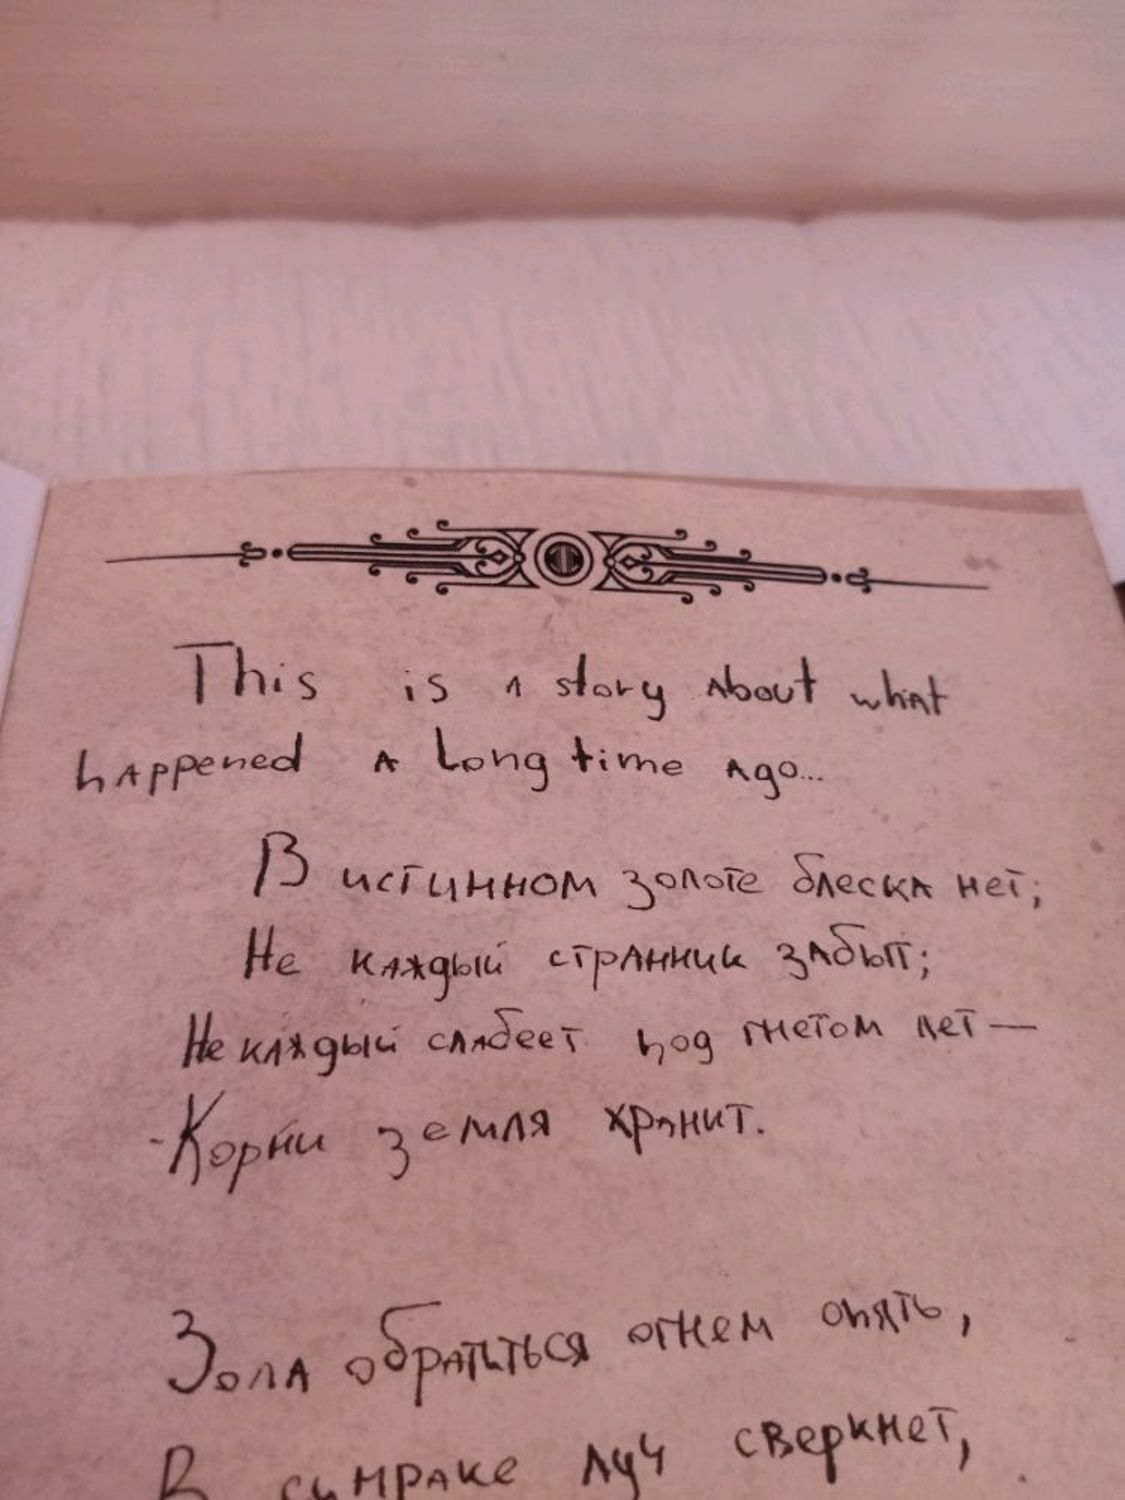 This is a story about what
happened a long time ago...
В истинном золоте блеска нет;
Не каждый странник забыт;
Не каждый слабеет под гнетом лет —
-Корни земля хранит.
Зола обратиться огнем опять,
В сумраке луч сверкнет,